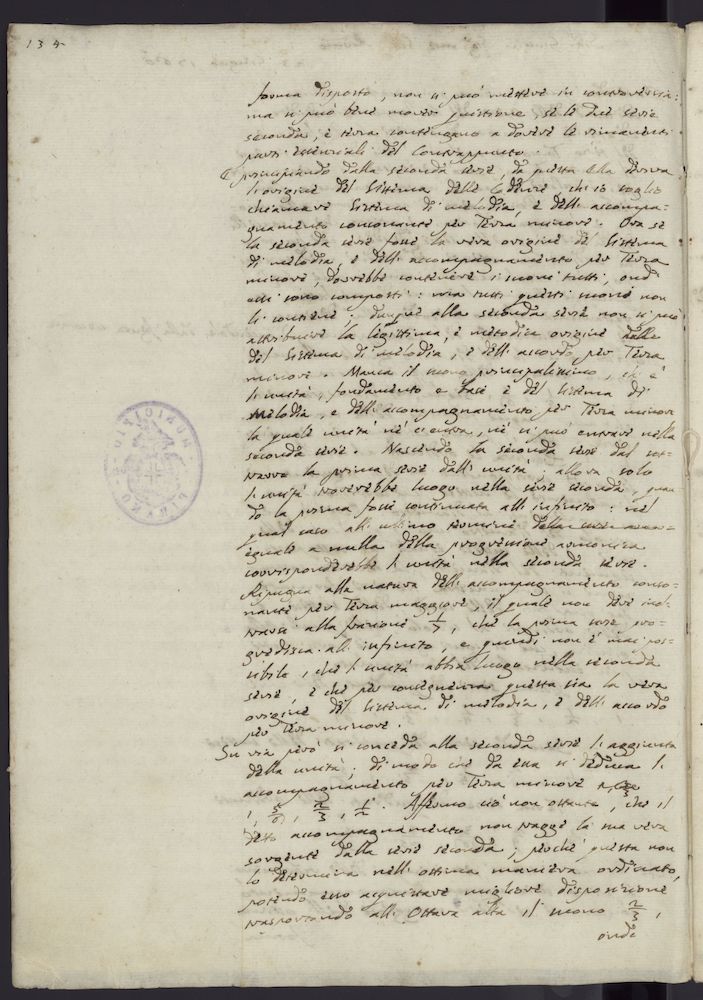 134
forma disposto, non si può mettere in controversia:
ma si può bene mover quistione, se le due serie
seconda, e terza contengano a dovere le rimanenti
parti essenziali del Contrappunto.
E principiando dalla seconda serie, da questa ella deriva
l'origine del sistema delle Cadenze, ch'io voglio
chiamare sistema di melodia, e dell'accompa=
gnamento consonante per Terza minore. Ora se
la seconda serie fosse la vera origine del sistema
di melodia, e dell'accompagnamento per Terza
minore, dovrebbe contenere i suoni tutti, ond'
essi sono composti: ma tutti questi suoni non
li contiene; dunque alla seconda serie non si può
attribuire la legittima, e metodica origine
del sistema di melodia, e dell'accordo per Terza
minore. Manca il suono principalissimo, ch'è
l'unità, fondamento e base e del sistema di
melodia, e dell'accompagnamento per Terza minore
la quale unità nè ci entra, nè ci può entrare nella
seconda serie. Nascendo la seconda serie dal sot=
trarre la prima serie dall'unità; allora solo
l'unità troverebbe luogo nella serie seconda, quan
do la prima fosse continuata all'infinito: nel
qual caso all'ultimo termine
eguale a nulla della progressione armonica
corrisponderebbe l'unità nella seconda serie.
Ripugna alla natura dell'accompagnamento conso=
nante per Terza maggiore, il quale non deve inol=
trarsi alla frazione 1/7, che la prima serie pro=
gredisca all'infinito, e quindi non è mai pos=
sibile, che l'unità abbia luogo nella seconda
serie, e che per conseguenza questa sia la vera
origine del sistema di melodia, e dell'accordo
per Terza minore.
Su via però si conceda alla seconda serie l'aggiunta
della unità; di modo che da essa si deduca l'
accompagnamento per Terza minore
1, 5/6, 2/3, 1/2. Affermo ciò non ostante, che il
detto accompagnamento non tragge la sua vera
sorgente dalla serie seconda; perchè questa non
lo determina nell'ottima maniera ordinato,
potendo esso acquistare migliore disposizione
trasportando all'Ottava alta il suono 2/3,
onde